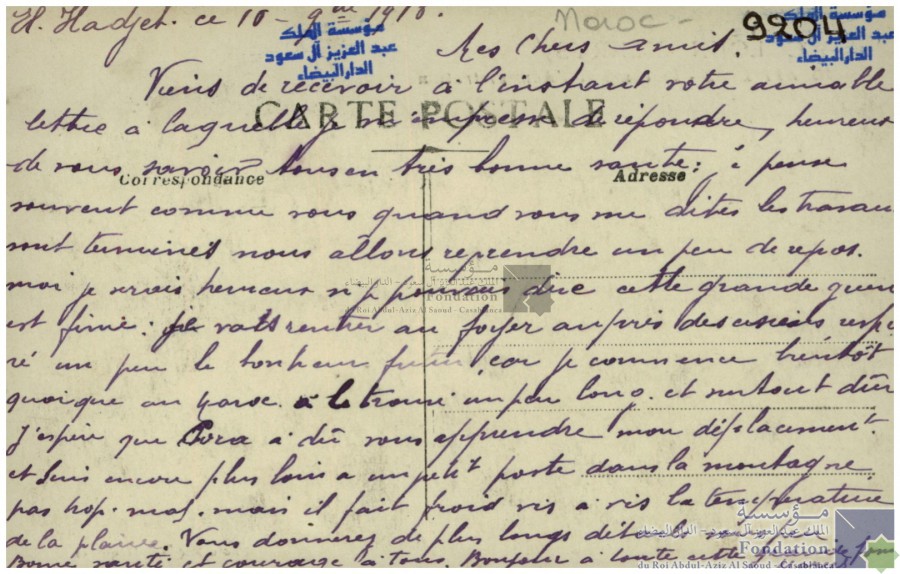 El. Hadjet. ce 10 - 9bre 1918.
Maroc -
9204
مؤسسة الملك
عبد العزيز آل سعود
الدار البيضاء
مؤسسة الملك
عبد العزيز آل سعود
الدار البيضاء
Mes Chers amis.
Viens de recevoir à l'instant votre aimable
CARTE POSTALE
lettre à laquelle je m'empresse de répondre, heureux
de vous savoir tous en très bonne santé;
Correspondance
Adresse
souvent comme vous quand vous me dites les travaux
sont terminés nous allons reprendre un peu de repos.
moi je serais heureux si je pouvais dire cette grande guerre
est finie: je vais rentrer au foyer auprès des
un peu le bonheur car je commence bientôt
quoique au Maroc à le trouver un peu long. et surtout dur
J'espère que a dû vous apprendre mon déplacement.
et suis encore plus loin a un petit poste dans la montagne
pas trop. mal. mais il fait froid vis à vis la température
de la plaine. Vous donnerez de plus longs détails
Bonne santé et courage à tous. Bonjour à toute cette
مؤسسة
الملك عبد العزيز آل سعود - الدار البيضاء
Fondation
du Roi Abdul-Aziz Al Saoud - Casablanca
مؤسسة
الملك عبد العزيز آل سعود - الدار البيضاء
Fondation
du Roi Abdul-Aziz Al Saoud - Casablanca